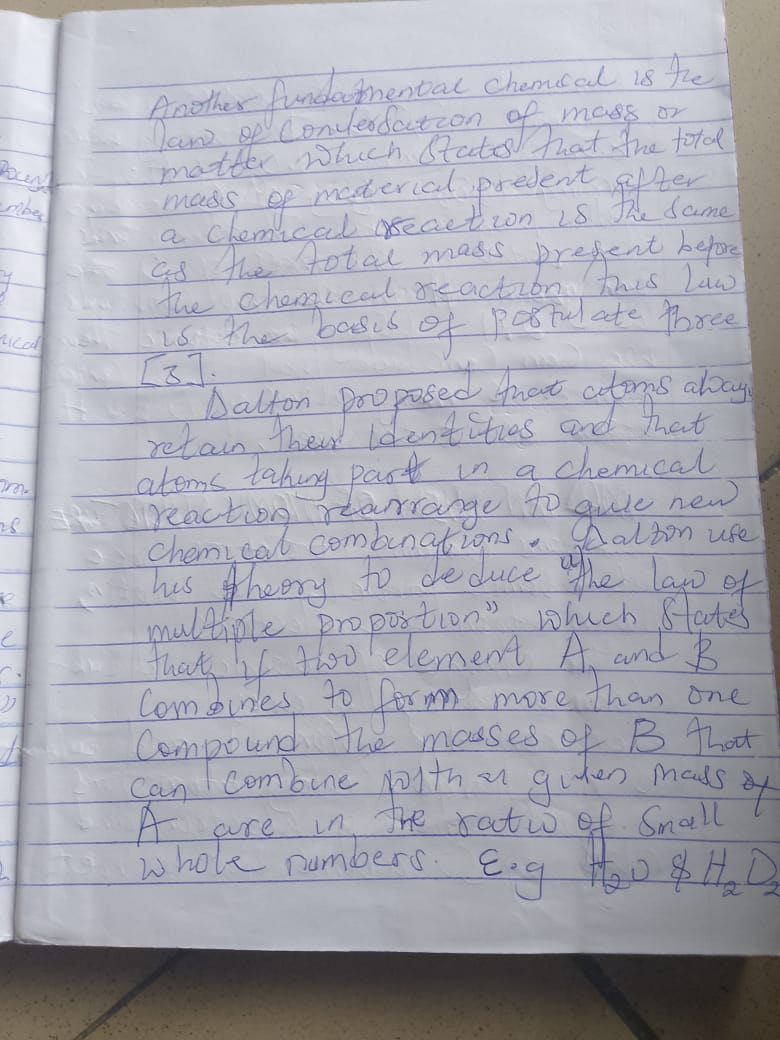 Another fundamental chemical is the
law of Conversation of mass or
matter which States that the total
mass of material present after
a chemical reaction is the same
as the total mass present before
the chemical reaction this law
is the basis of Postulate three
[3].
Dalton proposed that atoms alway
retain their identities and that
atoms taking part in a chemical
reaction rearrange to give new
chemical combinations. Dalton use
his theory to deduce "the law of
multiple proportion" which States
that if two element A and B
Combines to form more than one
Compound the masses of B that
can combine with a given mass of
A are in the ratio of Small
whole numbers. E.g H₂O & H₂O₂